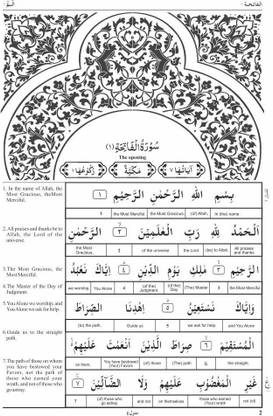 الفاتحة
سُوْرَةُ الْفَاتِحَةِ (١)
The opening
اٰيَاتُهَا ٧
مَكِّيَّةٌ
رُكُوْعُهَا ١
1. In the name of Allah, the Most Gracious, the Most Merciful.
بِسْمِ اللّٰهِ الرَّحْمٰنِ الرَّحِيْمِ ١
In (the) name (of) Allah, the Most Gracious the Most Merciful.
2. All praises and thanks be to Allah, the Lord of the universe.
اَلْحَمْدُ لِلّٰهِ رَبِّ الْعٰلَمِيْنَ ٢ الرَّحْمٰنِ
All praises and thanks (be) to Allah, the Lord of the universe 2 the Most Gracious,
3. The Most Gracious, the Most Merciful.
4. The Master of the Day of Judgment.
الرَّحِيْمِ ٣ مٰلِكِ يَوْمِ الدِّيْنِ ٤ اِيَّاكَ نَعْبُدُ
the Most Merciful 3 (The) Master (of the) Day (of the) Judgment 4 You Alone we worship,
5. You Alone we worship, and You Alone we ask for help.
6. Guide us to the straight path.
وَاِيَّاكَ نَسْتَعِيْنُ ٥ اِهْدِنَا الصِّرَاطَ
and You Alone we ask for help 5 Guide us (to) the path,
7. The path of those on whom you have bestowed your Favors, not the path of those who earned your wrath, and not of those who go astray.
الْمُسْتَقِيْمَ ٦ صِرَاطَ الَّذِيْنَ اَنْعَمْتَ عَلَيْهِمْ
the straight. 6 (The) path (of) those You have bestowed (Your) Favors on them,
غَيْرِ الْمَغْضُوْبِ عَلَيْهِمْ وَلَا الضَّآلِّيْنَ ٧
not (of) those who earned (Your) wrath on themselves and not (of) those who go astray. 7